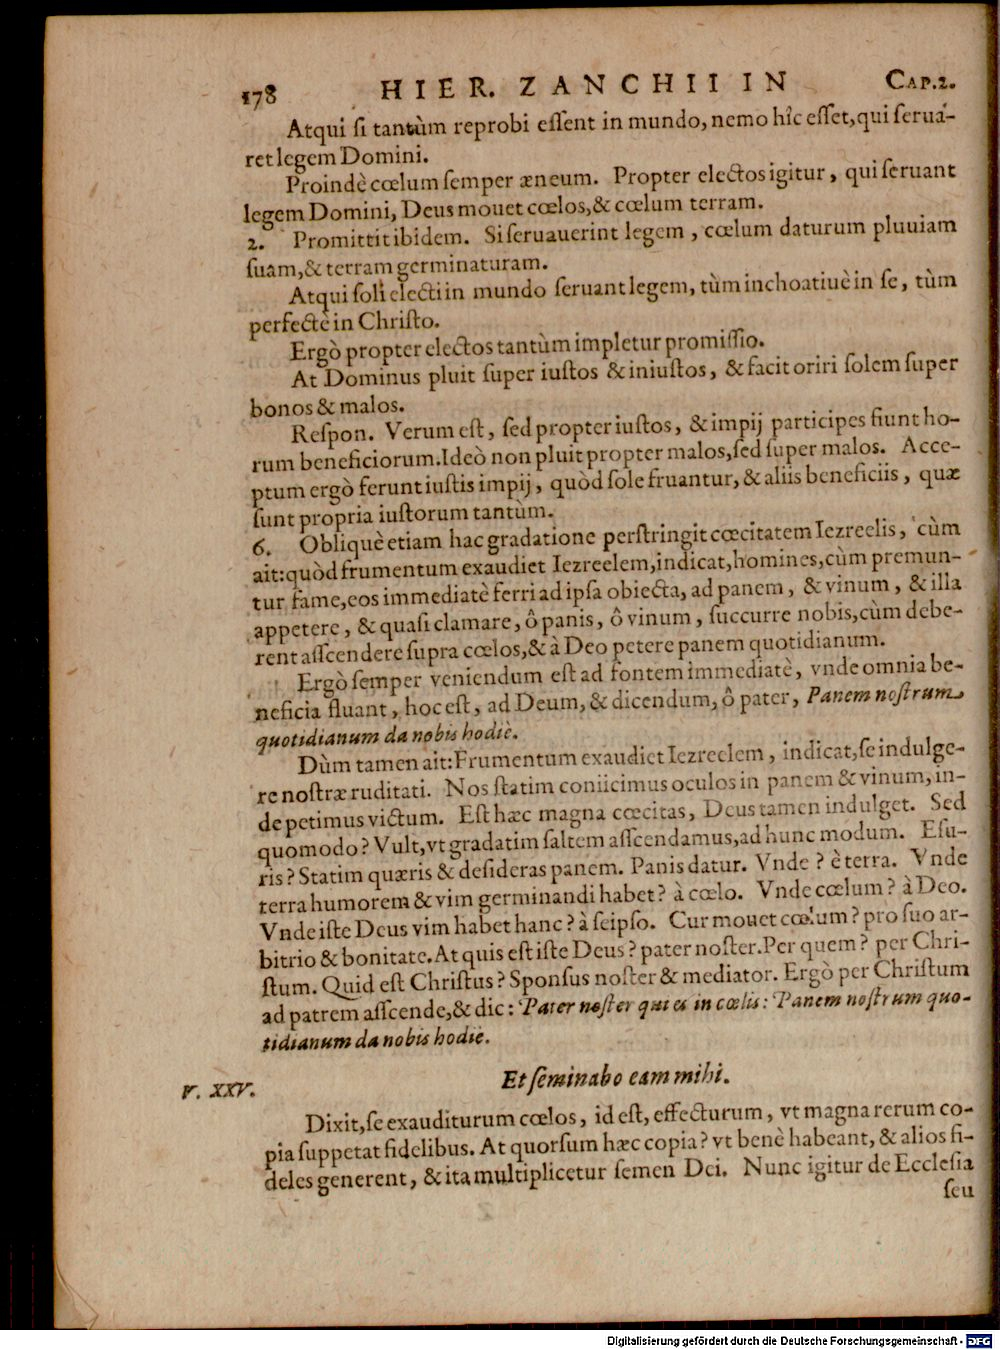 178 HIER. ZANCHII IN CAP.2.
Atqui si tantùm reprobi essent in mundo, nemo hîc esset, qui seruá-
ret legem Domini.
Proindè cœlum semper æneum. Propter electos igitur, qui seruant
legem Domini, Deus mouet cœlos, & cœlum terram.
2. Promittit ibidem. Si seruauerint legem, cœlum daturum pluuiam
suam, & terram germinaturam.
Atqui soli electi in mundo seruant legem, tùm inchoatiuè in se, tùm
perfectè in Christo.
Ergò propter electos tantùm impletur promissio.
At Dominus pluit super iustos & iniustos, & facit oriri solem super
bonos & malos.
Respon. Verum est, sed propter iustos, & impij participes fiunt ho-
rum beneficiorum. Ideò non pluit propter malos, sed super malos. Acce-
ptum ergò ferunt iustis impij, quòd sole fruantur, & aliis beneficiis, quæ
sunt propria iustorum tantùm.
6. Obliquè etiam hac gradatione perstringit cœcitatem Iezreelis, cùm
ait: quòd frumentum exaudiet Iezreelem, indicat, homines, cùm premun-
tur fame, eos immediatè ferri ad ipsa obiecta, ad panem, & vinum, & illa
appetere, & quasi clamare, ô panis, ô vinum, succurre nobis, cùm debe-
rent asscendere supra cœlos, & à Deo petere panem quotidianum.
Ergò semper veniendum est ad fontem immediatè, vnde omnia be-
neficia fluant, hoc est, ad Deum, & dicendum, ô pater, Panem nostrum
quotidianum da nobis hodiè.
Dùm tamen ait: Frumentum exaudiet Iezreelem, indicat, se indulge-
re nostræ ruditati. Nos statim coniicimus oculos in panem & vinum, in-
de petimus victum. Est hæc magna cœcitas, Deus tamen indulget. Sed
quomodo? Vult, vt gradatim saltem asscendamus, ad hunc modum. Esu-
ris? Statim quæris & desideras panem. Panis datur. Vnde? è terra. Vnde
terra humorem & vim germinandi habet? à cœlo. Vnde cœlum? à Deo.
Vnde iste Deus vim habet hanc? à seipso. Cur mouet cœlum? pro suo ar-
bitrio & bonitate. At quis est iste Deus? pater noster. Per quem? per Chri-
stum. Quid est Christus? Sponsus noster & mediator. Ergò per Christum
ad patrem asscende, & dic: Pater noster qui es in cœlis: Panem nostrum quo-
tidianum da nobis hodiè.
V. XXV. Et seminabo eam mihi.
Dixit, se exauditurum cœlos, id est, effecturum, vt magna rerum co-
pia suppetat fidelibus. At quorsum hæc copia? vt benè habeant, & alios fi-
deles generent, & ita multiplicetur semen Dei. Nunc igitur de Ecclesia
seu
Digitalisierung gefördert durch die Deutsche Forschungsgemeinschaft - DFG